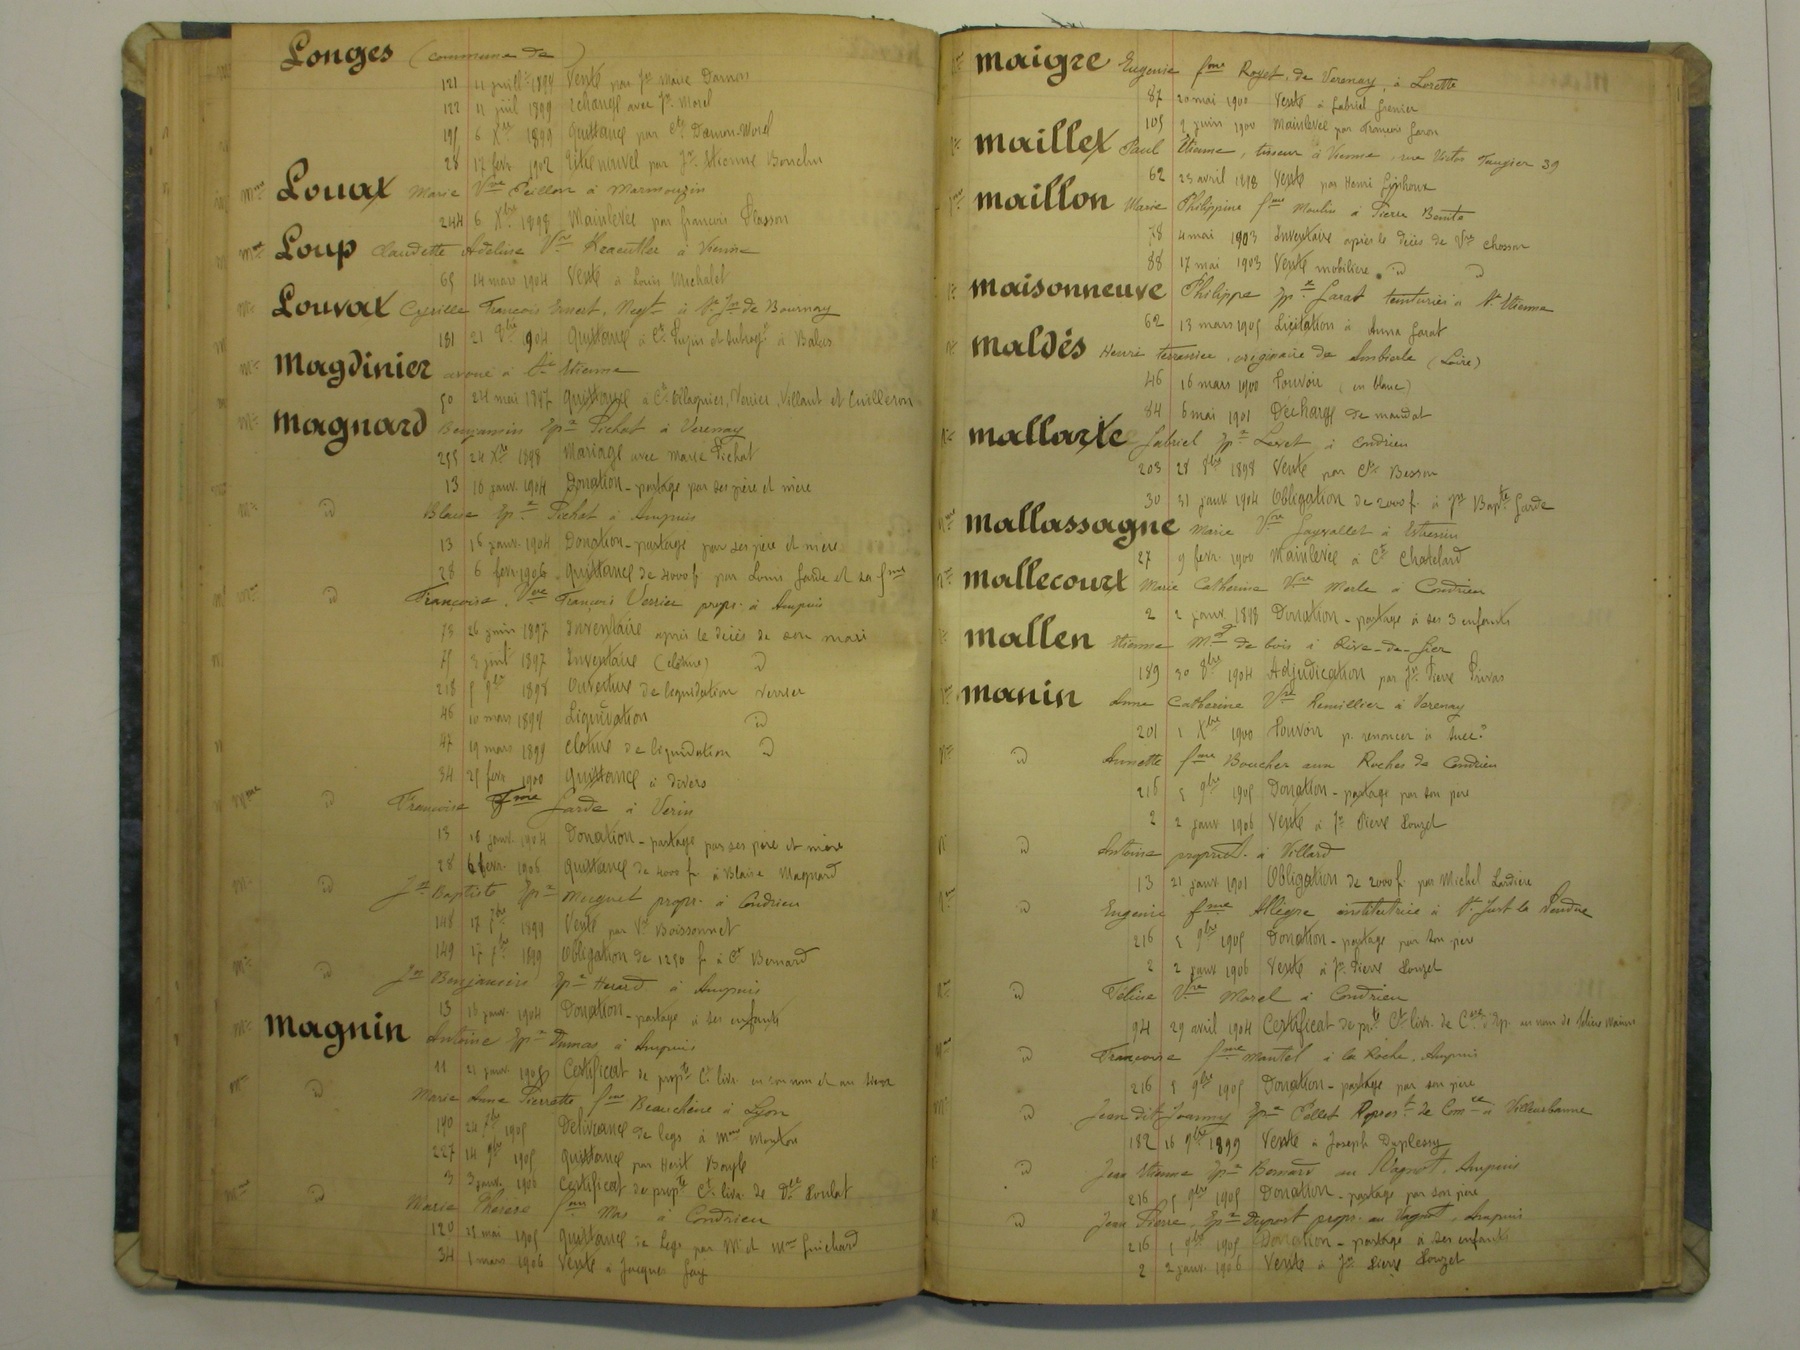 Longes (commune de )
121 11 juill. 1899 Vente par Jn Marie Damon
122 11 juil 1899 Echange avec Jn Morel
195 6 Xbre 1899 Quittance par Cts Damon-Morel
28 17 fevr. 1902 Titre nouvel par Jn Etienne Bonchu
Mme Louat Marie Vve Peillon à
244 6 Xbre 1898 Mainlevée par François Plasson
Mme Loup Claudette Adeline Vve à Vienne
65 14 mars 1904 Vente à Louis Michalet
Mr Louvat Cyrille François Ernest, Negt à St Jn de Bournay
181 21 9bre 1904 Quittance à Cts
Mr Magdinier avoué à St Etienne
50 24 mai 1897 Quittance à Cts Villaquier, Verrier, Villaut et Cuilleron
Mr Magnard Benjamin Epx Pichat à Verenay
255 24 Xbre 1898 Mariage avec Marie Pichat
13 16 janv. 1904 Donation - partage par ses père et mère
Mr id Blaise Epx Pichat à Ampuis
13 16 janv. 1904 Donation - partage par ses père et mère
28 6 fevr. 1906 Quittance de 4000 f. par Louis Garde et sa fme
Mme id Françoise, Vve François Verrier propr. à Ampuis
73 26 juin 1897 Inventaire après le décès de son mari
75 3 juil 1897 Inventaire (clôture) id
218 5 9bre 1898 Ouverture de liquidation Verrier
46 10 mars 1899 Liquidation id
47 19 mars 1899 Clôture de liquidation id
34 25 fevr 1900 Quittance à divers
Mme id Françoise fme Garde à Verin
13 16 janv. 1904 Donation - partage par ses père et mère
28 6 fevr. 1906 Quittance de 4000 fr. à Blaise Magnard
Mr id Jn Baptiste Epx Muguet propr. à Condrieu
148 17 7bre 1899 Vente par Ve Boissonnet
149 17 7bre 1899 Obligation de 1250 f. à Ct Bernard
Mr id Jn Benjamin Epx Hérard à Ampuis
13 16 janv. 1904 Donation - partage à ses enfants
Mr Magnin Antoine Epx Dumas à Ampuis
11 21 janv. 1905 Certificat de propté Ct livr. en son nom et au
Mme id Marie Anne Pierrette fme Beauchêne à Lyon
190 24 7bre 1905 Délivrance de legs à Mme
227 14 9bre 1905 Quittance par Hérit Bouple
3 3 janv. 1906 Certificat de propté Ct livr. de Dlle Poulat
Mme id Marie Thérèse fme Mas à Condrieu
120 25 mai 1905 Quittance de Legs par Mr et Mme Guichard
34 1 mars 1906 Vente à Jacques Gay
Maigre Eugenie fme Royet, de Verenay, à Lorette
87 20 mai 1900 Vente à Gabriel Grenier
105 2 juin 1900 Mainlevée par François Garon
Maillet Paul Etienne, tisseur à Vienne, rue Victor Faugier 39
62 23 avril 1898 Vente par Henri
Maillon Marie Philippine fme Moulin à Pierre Benite
78 4 mai 1903 Inventaire après le décès de Vve Chosson
88 17 mai 1903 Vente mobilière id id
Maisonneuve Philippe Epx Garat teinturier à St Etienne
62 13 mars 1905 Licitation à Anna Garat
Maldés Henri terrassier, originaire de Ambierle (Loire)
46 16 mars 1900 Pouvoir (en blanc)
84 6 mai 1901 Décharge de mandat
Mallarte Gabriel Epx Levet à Condrieu
203 28 8bre 1898 Vente par Cts Besson
30 31 janv 1904 Obligation de 2000 f. à Jn Bapte Garde
Mallassagne Marie Vve Jayvallet à Estressin
27 9 fevr. 1900 Mainlevée à Ct Chatelard
Mallecourt Marie Catherine Vve Merle à Condrieu
2 2 janv. 1898 Donation - partage à ses 3 enfants
Mallen Etienne Md de bois à Rive-de-Gier
189 30 8bre 1904 Adjudication par Jn Pierre Privas
Manin Anne Catherine Vve Remillier à Verenay
201 1 Xbre 1900 Pouvoir p. renoncer à succon
id Annette fme Boucher aux Roches de Condrieu
216 5 9bre 1905 Donation - partage par son père
2 2 janv 1906 Vente à Jn Pierre Pouzet
id Antoine propriet. à Villard
13 21 janv. 1901 Obligation de 2000 f. par Michel Lardière
id Eugenie fme Allègre, institutrice à St Just la Pendue
216 5 9bre 1905 Donation - partage par son père
2 2 janv 1906 Vente à Jn Pierre Pouzet
id Féline Vve Morel à Condrieu
94 29 avril 1904 Certificat de pté Ct livr. de Csse d'Ep. au nom de Féline Manin
id Françoise fme Mantel à la Roche, Ampuis
216 5 9bre 1905 Donation - partage par son père
id Jean dit Joanny Epx Pellet Représt de Comce à Villeurbanne
182 16 9bre 1899 Vente à Joseph Duplessy
id Jean Etienne Epx Bonnard au Vagnot, Ampuis
216 5 9bre 1905 Donation - partage par son père
id Jean Pierre, Epx Dupont propr. au Vagnot, Ampuis
216 5 9bre 1905 Donation - partage à ses enfants
2 2 janv. 1906 Vente à Jn Pierre Pouzet